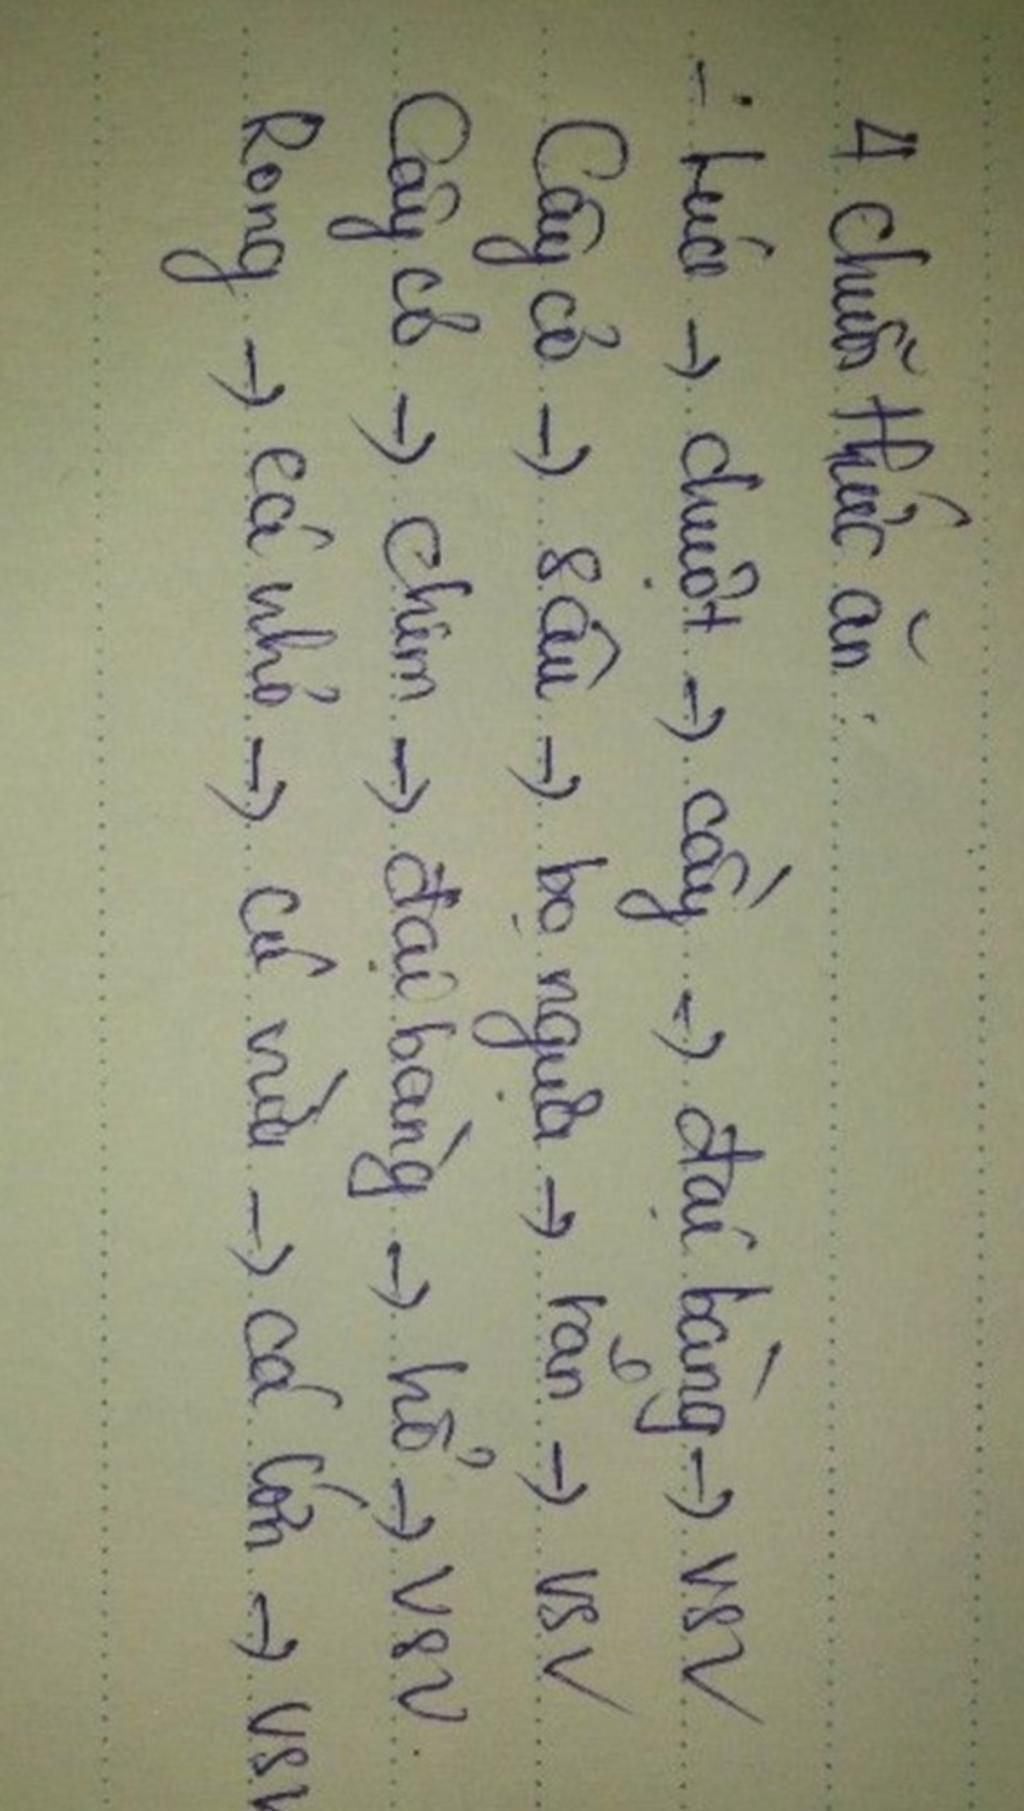 4 chuỗi thức ăn:
- Lúa → chuột → cầy → đại bàng → VSV
Cây cỏ → sâu → bọ ngựa → rắn → VSV
Cây cỏ → chim → đại bàng → hổ → VSV.
Rong → cá nhỏ → cá vừa → cá lớn → VSV